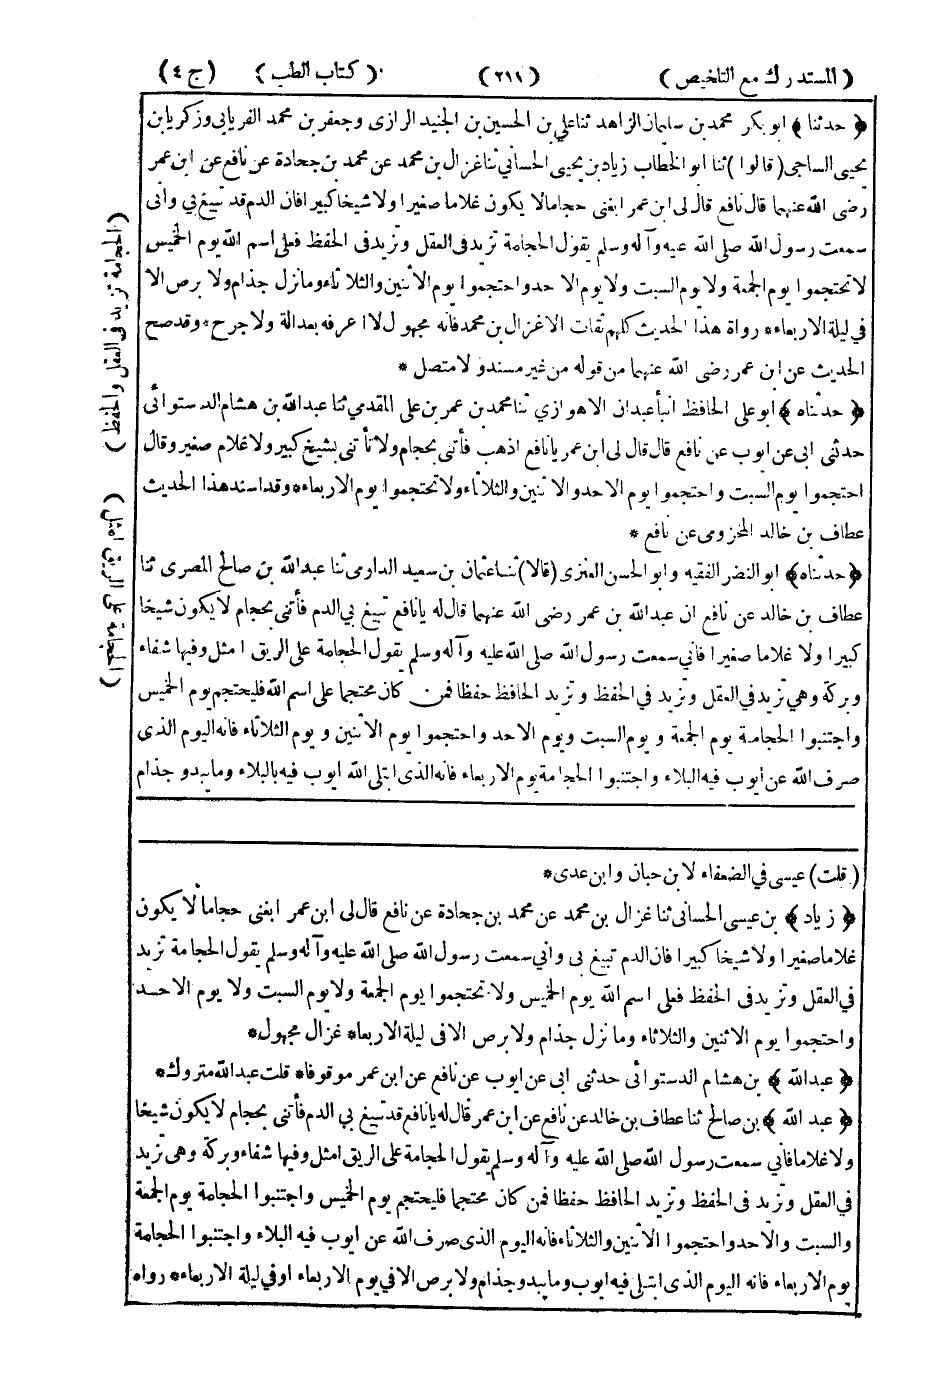 ( المستدرك مع التلخيص ) ( ٢١١ ) ( كتاب الطب ) ( ج ٤ )
﴿ حدثنا ﴾ ابو بكر محمد بن سليمان الزاهد ثنا علي بن الحسين بن الجنيد الرازى وجعفر بن محمد الفريابى وزكريا بن
يحيى الساجى ( قالوا ) ثنا ابو الخطاب زياد بن يحيى الحسانى ثنا غزال بن محمد عن محمد بن جحادة عن نافع عن ابن عمر
رضى الله عنهما قال نافع قال لى ابن عمر ابغنى حجاما لا يكون غلاما صغيرا ولا شيخا كبيرا فان الدم قد تبيغ بي وانى
سمعت رسول الله صلى الله عيه وآله وسلم يقول الحجامة تزيد فى العقل وتزيد فى الحفظ فعلى اسم الله يوم الخميس
لا تحتجموا يوم الجمعة ولا يوم السبت ولا يوم الاحد واحتجموا يوم الأثنين والثلاثاء وما نزل جذام ولا برص الا
في ليلة الاربعاء* رواة هذا الحديث كلهم ثقات الا غزال بن محمد فانه مجهول لا اعرفه بعدالة ولا جرح * وقد صح
الحديث عن ابن عمر رضى الله عنهما من قوله من غير مسند ولا متصل *
﴿ حدثناه ﴾ ابو على الحافظ انبأ عبدان الاهوازي ثنا محمد بن عمر بن على المقدمي ثنا عبدالله بن هشام الدستوائى
حدثنى ابى عن ايوب عن نافع قال قال لى ابن عمر يا نافع اذهب فأتنى بحجام ولا تأتنى بشيخ كبير ولا غلام صغير وقال
احتجموا يوم السبت واحتجموا يوم الاحد والاثنين والثلاثاء ولا تحتجموا يوم الاربعاء* وقد اسند هذا الحديث
عطاف بن خالد المخزومى عن نافع *
﴿ حدثناه ﴾ ابو النضر الفقيه وابو الحسن العنزى ( قالا ) ثنا عثمان بن سعيد الدارمى ثنا عبدالله بن صالح المصرى ثنا
عطاف بن خالد عن نافع ان عبدالله بن عمر رضى الله عنهما قال له يا نافع تبيغ بي الدم فأتنى بحجام لا يكون شيخا
كبيرا ولا غلاما صغيرا فاني سمعت رسول الله صلى الله عليه وآله وسلم يقول الحجامة على الريق امثل وفيها شفاء
وبركة وهي تزيد في العقل وتزيد في الحفظ وتزيد الحافظ حفظا فمن كان محتجما على اسم الله فليحتجم يوم الخميس
واجتنبوا الحجامة يوم الجمعة ويوم السبت ويوم الاحد واحتجموا يوم الاثنين ويوم الثلاثاء فانه اليوم الذى
صرف الله عن ايوب فيه البلاء واجتنبوا الحجامة يوم الاربعاء فانه الذى ابتلى الله ايوب فيه بالبلاء وما يبدو جذام
( الحجامة تزيد فى العقل والحفظ )
( الحجامة على الريق امثل )
( قلت ) عيسى في الضعفاء لابن حبان وابن عدى*
﴿ زياد ﴾ بن عيسى الحسانى ثنا غزال بن محمد عن محمد بن جحادة عن نافع قال لى ابن عمر ابغنى حجاما لا يكون
غلاما صغيرا ولا شيخا كبيرا فان الدم تبيغ بى وانى سمعت رسول الله صلى الله عليه وآله وسلم يقول الحجامة تزيد
في العقل وتزيد فى الحفظ فعلى اسم الله يوم الخميس ولا تحتجموا يوم الجمعة ولا يوم السبت ولا يوم الاحد
واحتجموا يوم الاثنين والثلاثاء وما نزل جذام ولا برص الا فى ليلة الاربعاء* غزال مجهول*
﴿ عبدالله ﴾ بن هشام الدستوائى حدثنى ابى عن ايوب عن نافع عن ابن عمر موقوفا* قلت عبدالله متروك*
﴿ عبد الله ﴾ بن صالح ثنا عطاف بن خالد عن نافع عن ابن عمر قال له يا نافع قد تبيغ بي الدم فأتنى بحجام لا يكون شيخا
ولا غلاما فاني سمعت رسول الله صلى الله عليه وآله وسلم يقول الحجامة على الريق امثل وفيها شفاء وبركة وهى تزيد
في العقل وتزيد فى الحفظ وتزيد الحافظ حفظا فمن كان محتجما فليحتجم يوم الخميس واجتنبوا الحجامة يوم الجمعة
والسبت والاحد واحتجموا الاثنين والثلاثاء فانه اليوم الذى صرف الله عن ايوب فيه البلاء واجتنبوا الحجامة
يوم الاربعاء فانه اليوم الذى ابتلى فيه ايوب وما يبدو جذام ولا برص الا في يوم الاربعاء او في ليلة الاربعاء* رواه